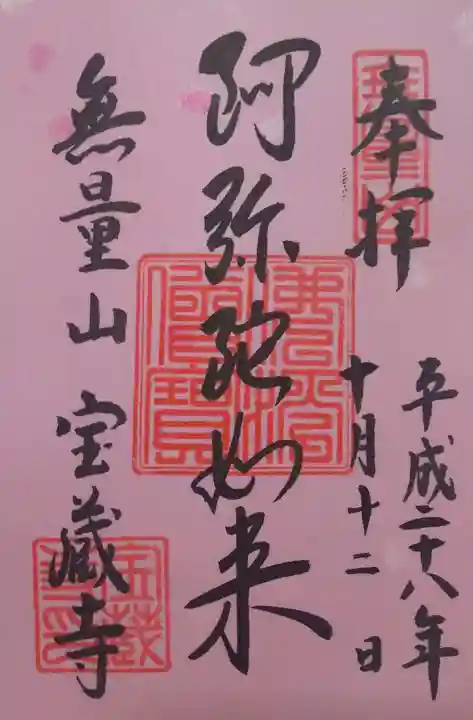 奉拝
平成二十八年
十月十二日
阿弥陀如来
無量山 宝蔵寺
佛法僧寶